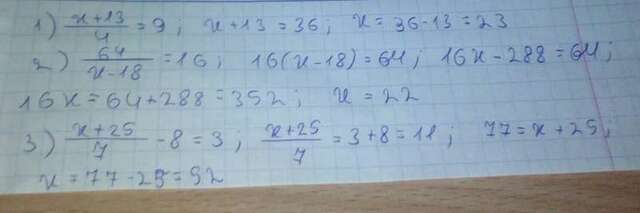 1) (x+13)/4 = 9; x+13=36; x=36-13=23
2) 64/(x-18) = 16; 16(x-18)=64; 16x-288=64;
16x=64+288=352; x=22
3) (x+25)/7 - 8 = 3; (x+25)/7 = 3+8=11; 77=x+25;
x=77-25=52